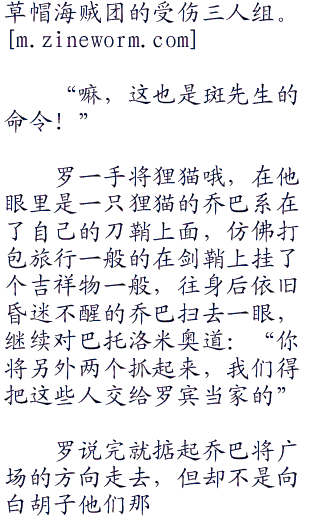 草帽海贼团的受伤三人组。
[m.zineworm.com]
“嘛，这也是斑先生的
命令！”
罗一手将狸猫哦，在他
眼里是一只狸猫的乔巴系在
了自己的刀鞘上面，仿佛打
包旅行一般的在剑鞘上挂了
个吉祥物一般，往身后依旧
昏迷不醒的乔巴扫去一眼，
继续对巴托洛米奥道：“你
将另外两个抓起来，我们得
把这些人交给罗宾当家的”
罗说完就掂起乔巴将广
场的方向走去，但却不是向
白胡子他们那